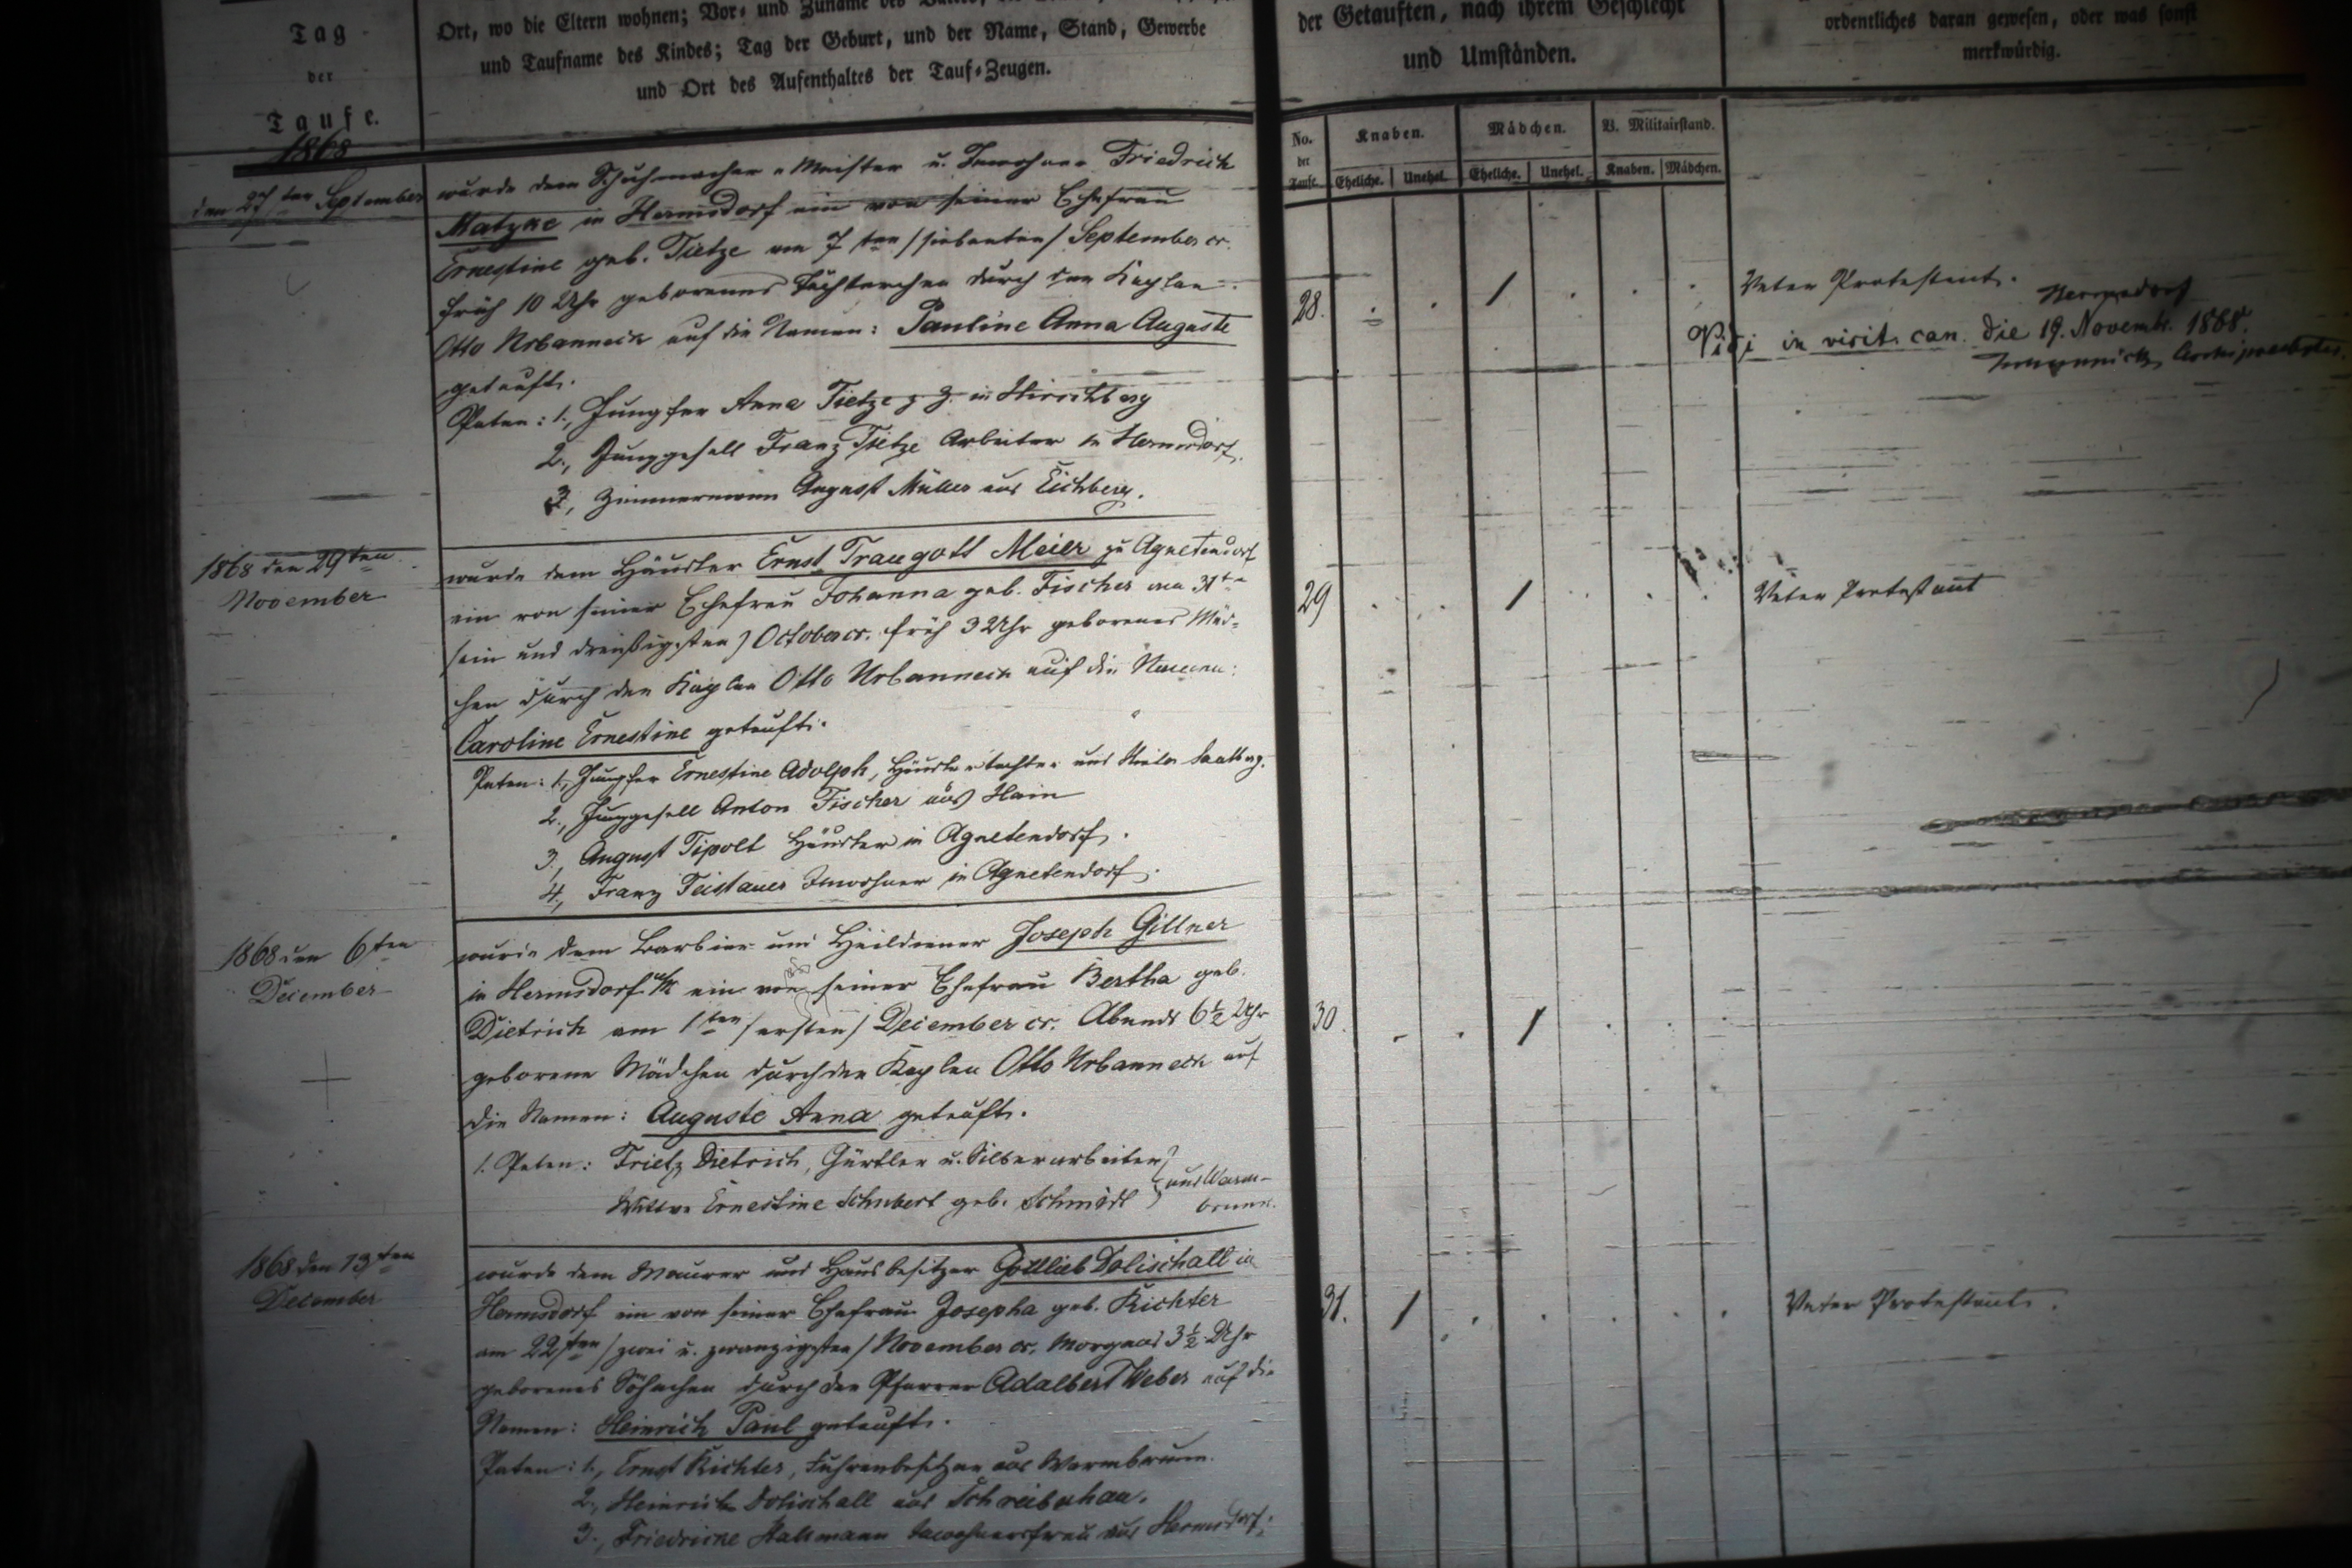 Tag
der
Taufe.
1868
Ort, wo die Eltern wohnen; Vor- und Zuname des
und Taufname des Kindes; Tag der Geburt, und der Name, Stand, Gewerbe
und Ort des Aufenthaltes der Tauf-Zeugen.
der Getauften, nach ihrem Geschlecht
und Umständen.
ordentliches daran gewesen, oder was sonst
merkwürdig.
No. der Taufe.
Knaben.
Mädchen.
V. Militairstand.
Eheliche.
Unehel.
Eheliche.
Unehel.
Knaben.
Mädchen.
den 27ten September
wurde dem Schuhmacher-Meister u. Inwohner Friedrich
Matzke in Hermsdorf ein von seiner Ehefrau
Ernestine geb. Tietze am 7ten /siebenten/ September cr.
früh 10 Uhr geborenes Töchterchen durch den Kaplan
Otto Urbanneck auf die Namen: Pauline Anna Auguste
getauft.
Paten: 1., Jungfer Anna Tietze z. Z. in Hirschberg
2., Junggesell Franz Tietze Arbeiter in Hermsdorf.
3., Zimmermann August Müller aus Eichberg.
28.
1
Vater Protestant.
Hermsdorf
Vidi in visit. can. die 19. Novemb. 1868.
Archipresbyter
1868 den 29ten
November
wurde dem Häusler Ernst Traugott Meier zu Agnetendorf
ein von seiner Ehefrau Johanna geb. Fischer am 31ten
/ein und dreißigsten/ October cr. früh 3 Uhr geborenes Mäd-
chen durch den Kaplan Otto Urbanneck auf die Namen:
Caroline Ernestine getauft.
Paten: 1., Jungfer Ernestine Adolph, Häuslertochter aus
2., Junggesell Anton Fischer aus Hain
3., August Tipolt Häusler in Agnetendorf.
4., Franz Teistauer Inwohner in Agnetendorf.
29
1
Vater Protestant
1868 den 6ten
December
wurde dem Barbier und Heildiener Joseph Gillner
in Hermsdorf u/K ein von seiner Ehefrau Bertha geb.
Dietrich am 1ten /ersten/ December cr. Abends 6½ Uhr
geborene Mädchen durch den Kaplan Otto Urbanneck auf
die Namen: Auguste Anna getauft.
1. Paten: Dietrich, Gürtler u. Silberarbeiter
Wittwe Ernestine Schubert geb. Schmidt
aus Warm-
brunn.
30.
1
1868 den 13ten
December
wurde dem Maurer und Hausbesitzer Gottlieb Dolischall in
Hermsdorf ein von seiner Ehefrau Josepha geb. Richter
am 22ten /zwei u. zwanzigsten/ November cr. Morgens 3½ Uhr
geborenes Söhnchen durch den Pfarrer Adalbert Weber auf die
Namen: Heinrich Paul getauft.
Paten: 1., Ernst Richter, Fuhrenbesitzer aus Warmbrunn.
2., Heinrich Dolischall aus Schreiberhau.
3., Friedricke Inwohnersfrau aus Hermsdorf.
31.
1
Vater Protestant.